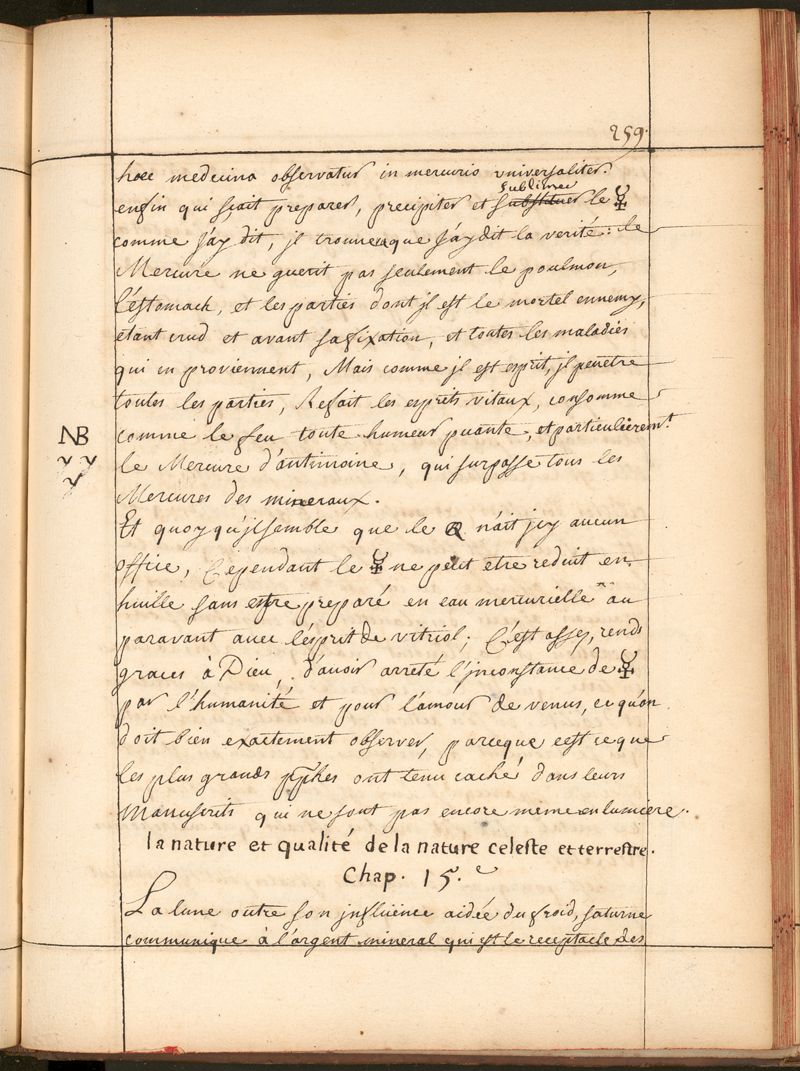 259.
haec medecina observatur in mercurio vniversaliter.
sublimer
enfin qui sçait preparer, precipiter et substituer le ☿
comme j'ay dit, jl trouuera que j'ay dit la verité: le
Mercure ne guerit pas seulement le poulmon,
l'estomach, et les parties dont jl est le mortel ennemy,
etant crud et avant sa fixation, et toutes les maladies
qui en proviennent, Mais comme jl est esprit, jl penetre
toutes les parties, Refait les esprits vitaux, consomme
comme le feu toute humeur puante, et particulierem.t
NB
le Mercure d'antimoine, qui surpasse tous les
Mercures des mineraux.
Et quoy qu'jl semble que le n'ait jcy aucun
office, Cependant le ☿ ne peut etre reduit en
huille sans estre preparé en eau mercurielle au
paravant avec l'esprit de vitriol; C'est assez, rends
graces à Dieu, d'avoir arreté l'jnconstance de ☿
par l'humanité et pour l'amour de venus, ce qu'on
doit bien exactement observer, parceque c'est ce que
les plus grands pphes ont tenu caché dans leurs
Manuscrits qui ne sont pas encore meme en lumiere.
la nature et qualité de la nature celeste et terrestre.
Chap. 15.e
La lune outre son jnflüence aidée du froid, saturne
communique à l'argent mineral qui est le receptacle des